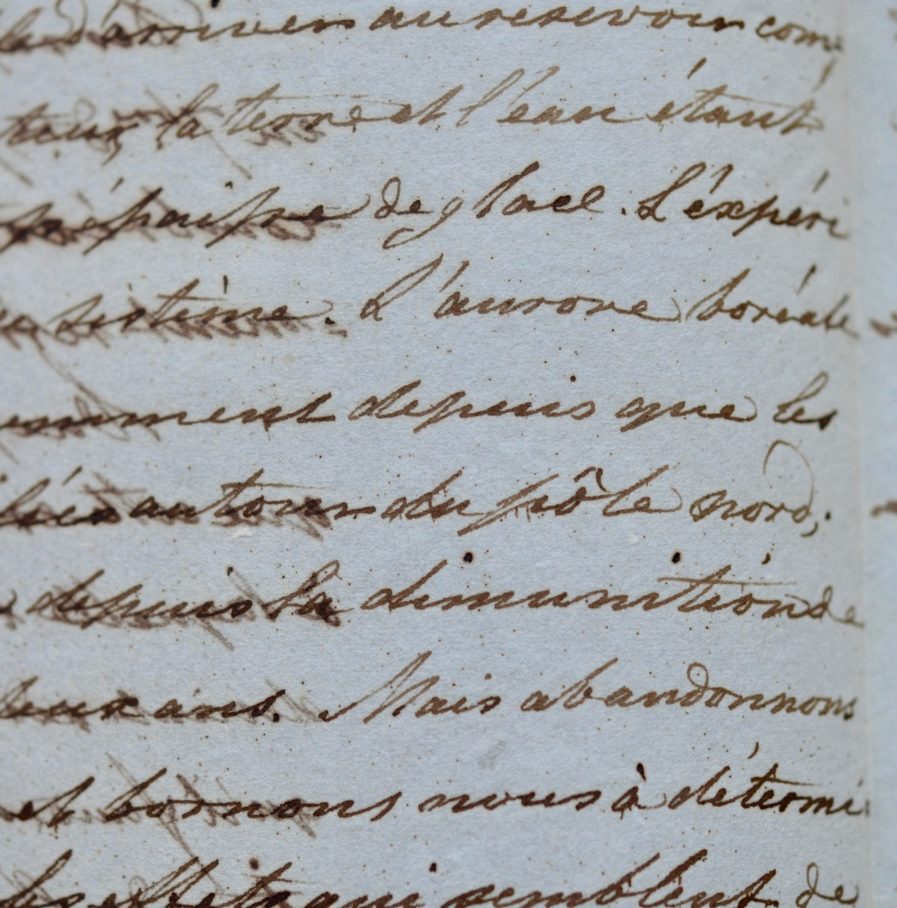 d'arriver au reservoir com
la terre et l'eau étant
épaisse de glace. L'expéri
sistème. L'aurore boréale
mment depuis que les
autour du pôle nord,
depuis la dimunition de
deux ans. Mais abandonnons
et bornons nous à détermi
les effets qui semblent de